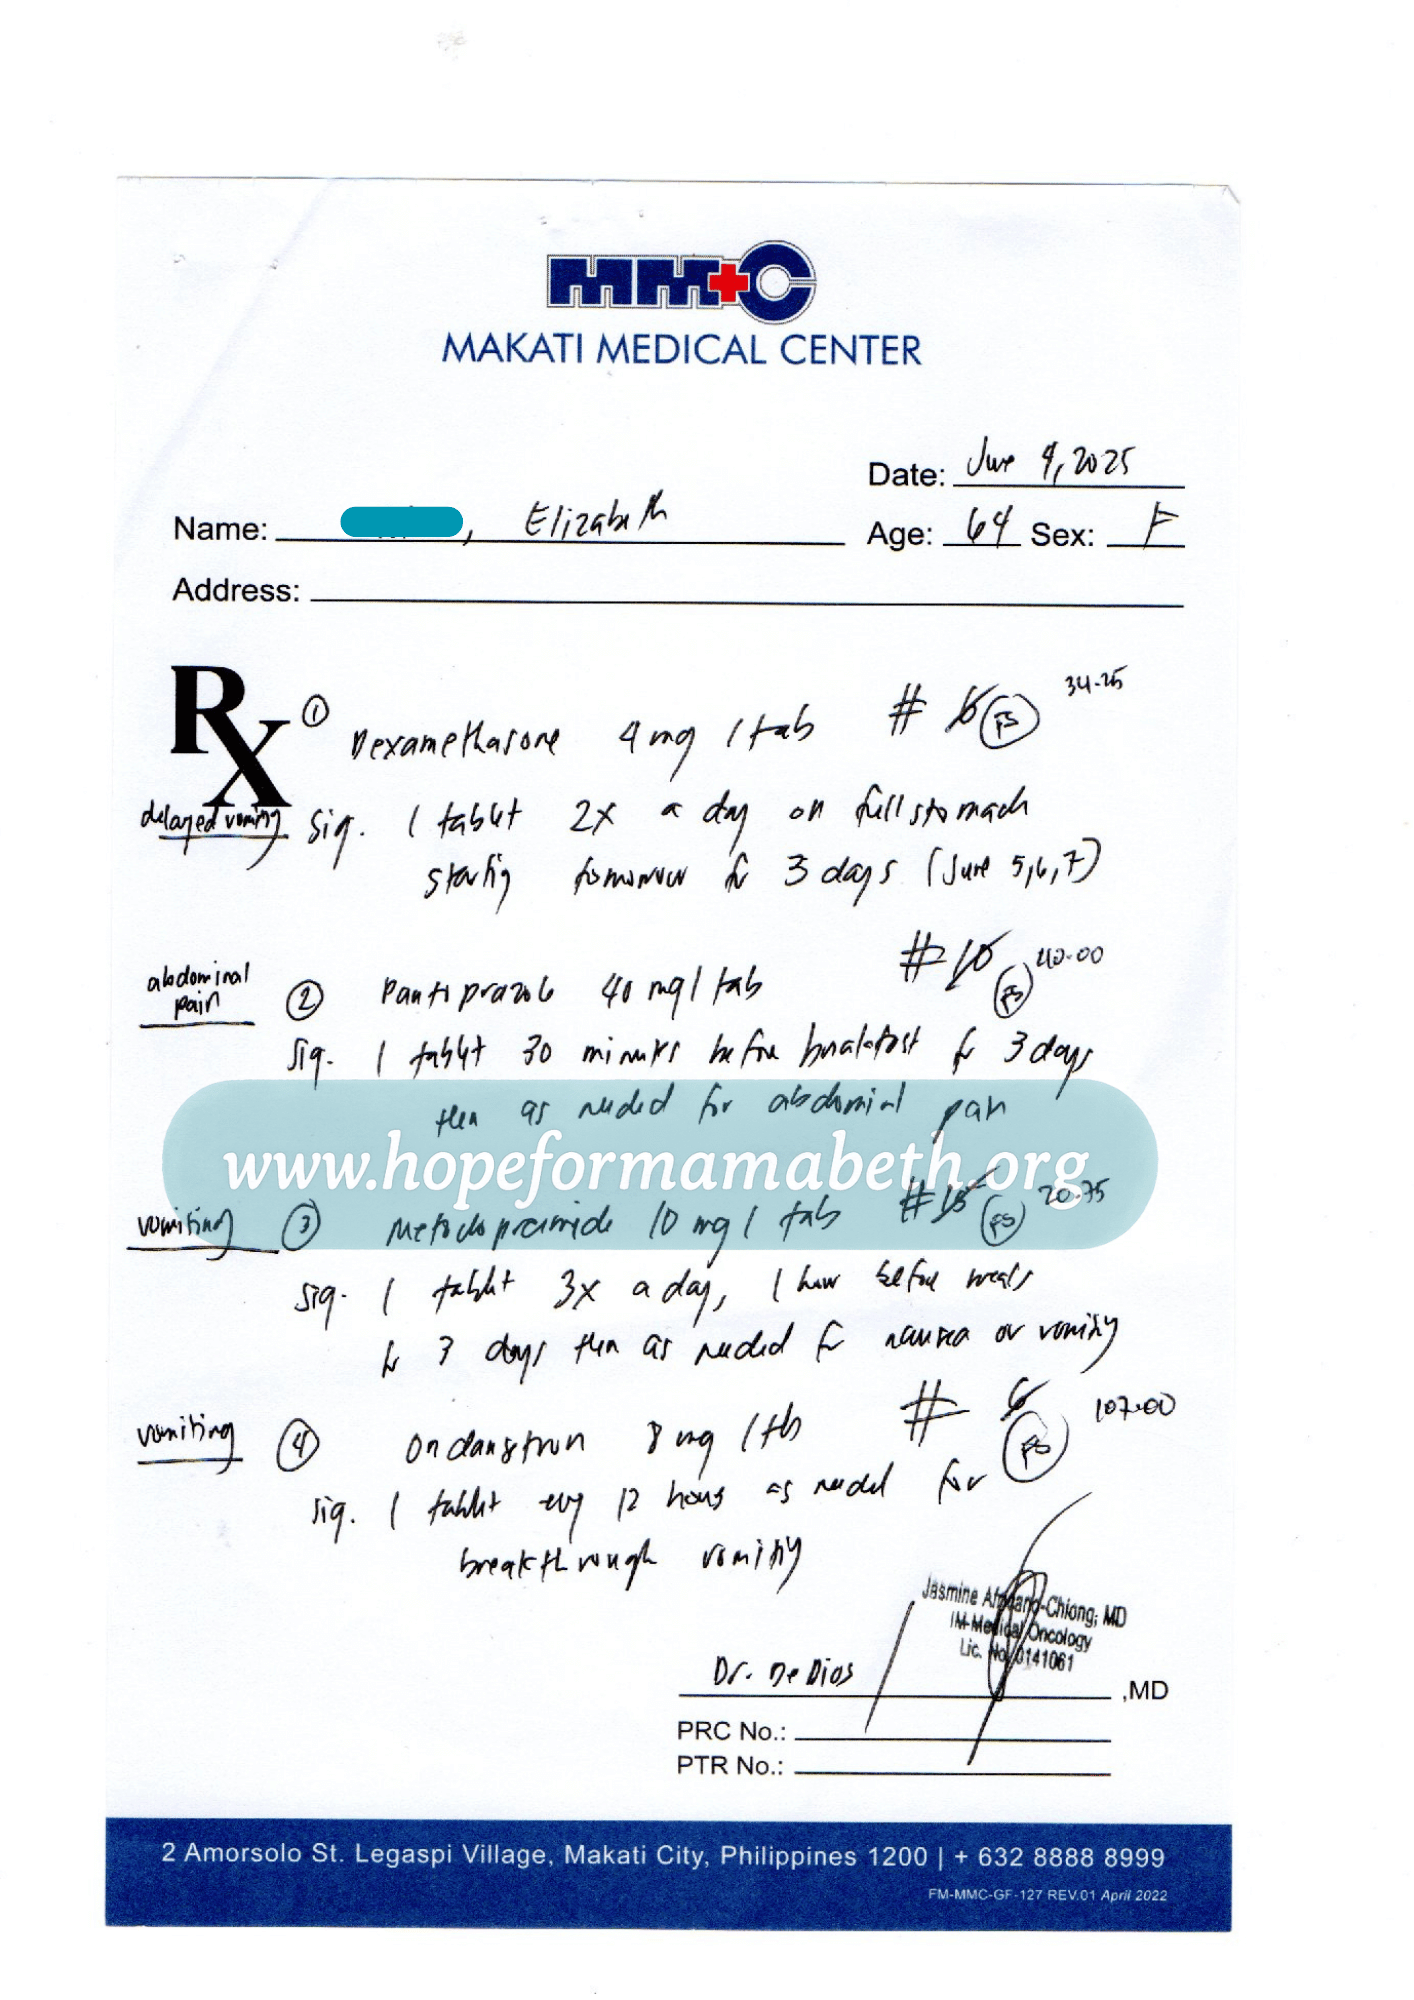 MMC
MAKATI MEDICAL CENTER
Date: June 4, 2025
Name: , Elizabeth
Age: 64 Sex: F
Address:
Rx
① Dexamethasone 4mg 1 tab # 6 FS 34.25
delayed vomiting Sig. 1 tablet 2x a day on full stomach
starting tomorrow for 3 days (June 5,6,7)
abdominal pain
② Pantoprazole 40 mg 1 tab # 10 FS 40.00
Sig. 1 tablet 30 minutes before breakfast for 3 days
then as needed for abdominal pain
www.hopeformamabeth.org
vomiting ③ Metoclopramide 10 mg 1 tab # 15 FS 20.75
Sig. 1 tablet 3x a day, 1 hour before meals
for 3 days then as needed for nausea or vomiting
vomiting ④ Ondansetron 8 mg 1 tb # 6 FS 107.00
Sig. 1 tablet every 12 hours as needed for
breakthrough vomiting
Jasmine -Chiong, MD
IM-Medical Oncology
Lic. No. 0141061
Dr. De Dios ,MD
PRC No.:
PTR No.:
2 Amorsolo St. Legaspi Village, Makati City, Philippines 1200 | + 632 8888 8999
FM-MMC-GF-127 REV.01 April 2022